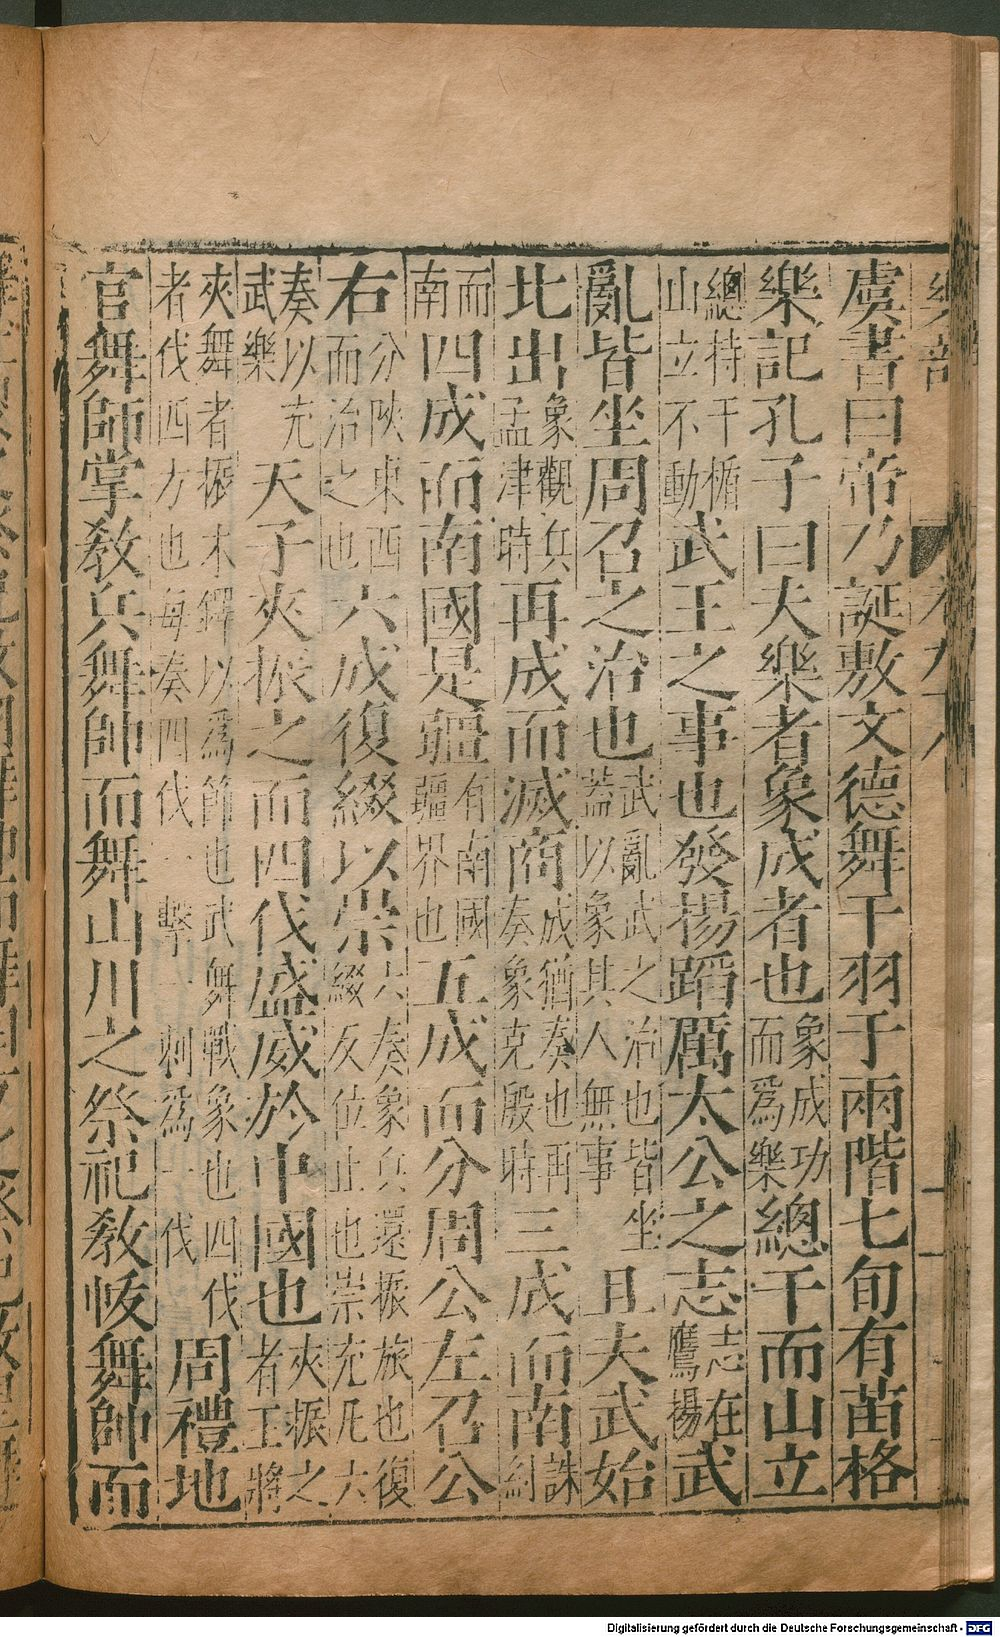 虞書曰帝乃誕敷文德舞干羽于兩階七旬有苗格
樂記孔子曰夫樂者象成者也象成功而爲樂總干而山立
總持干楯山立不動武王之事也發揚蹈厲太公之志志在鷹揚武
亂皆坐周召之治也武亂武之治也皆坐蓋以象其人無事且夫武始
北出象觀兵孟津時再成而滅商成猶奏也再奏象克殷時三成而南誅紂
而南四成而南國是疆有南國疆界也五成而分周公左召公
右分陝東西而治之也六成復綴以崇六奏象兵還振旅也復綴反位止也崇充凡六
奏以充武樂天子夾振之而四伐盛威於中國也夾振之者王將
夾舞者振木鐸以爲節也武舞戰象也四伐者伐四方也每奏四伐一擊一刺爲一伐周禮地
官舞師掌教兵舞帥而舞山川之祭祀教帗舞帥而
Digitalisierung gefördert durch die Deutsche Forschungsgemeinschaft - DFG